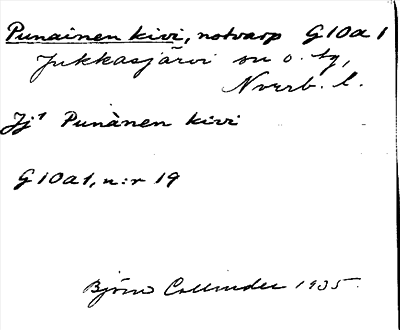 Punainen kivi, notvarp G10a1
Jukkasjärvi sn o. tg,
Nverb. l.
Jj¹ Punànen kivi
G10a1, n:r 19
Björn Collinder 1935.